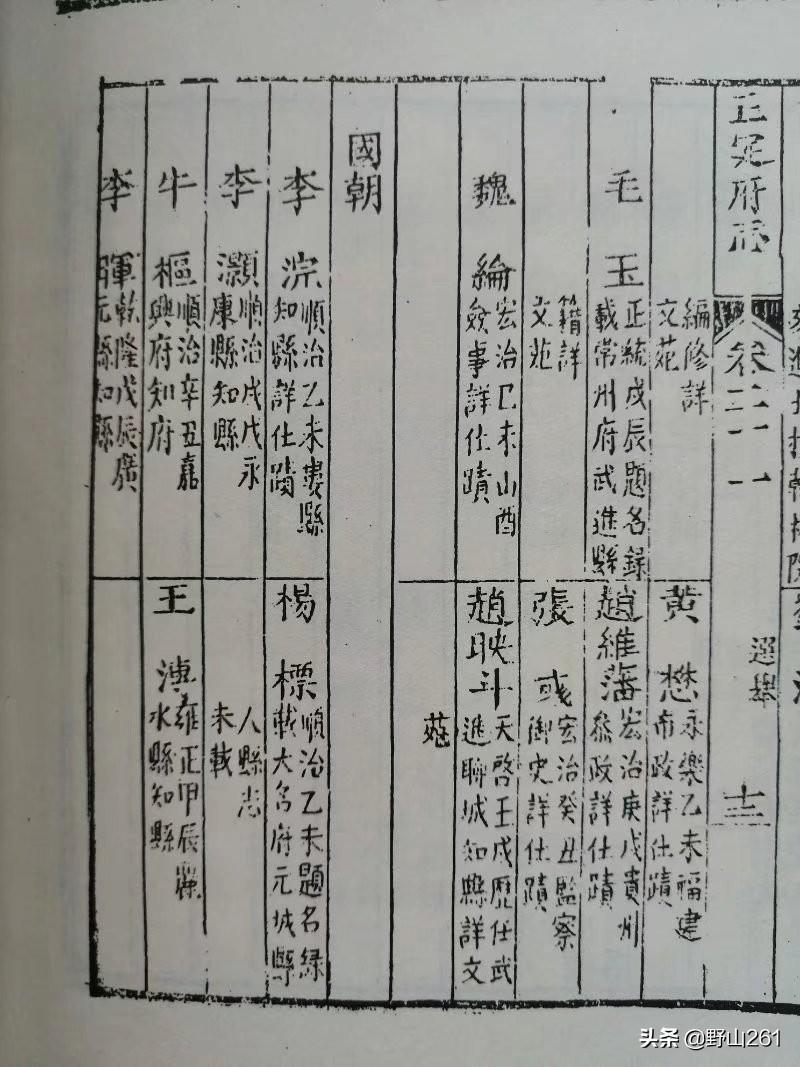 正定府志
選舉
編修詳
文苑
黃懋
永樂乙未福建
布政詳仕蹟
毛玉
正統戊辰題名錄
載常州府武進縣
趙維藩
宏治庚戌貴州
參政詳仕蹟
籍詳
文苑
張彧
宏治癸丑監察
御史詳仕蹟
魏綸
宏治己未山西
僉事詳仕蹟
趙映斗
天啓壬戌歷任武
進聊城知縣詳文
苑
國朝
李淙
順治乙未婁縣
知縣詳仕蹟
楊標
順治乙未題名錄
載大名府元城縣
李灝
順治戊戌永
康縣知縣
人縣志
未載
牛樞
順治辛丑嘉
興府知府
王
雍正甲辰麗
水縣知縣
李暉
乾隆戊辰廣
元縣知縣
头条 @野山261